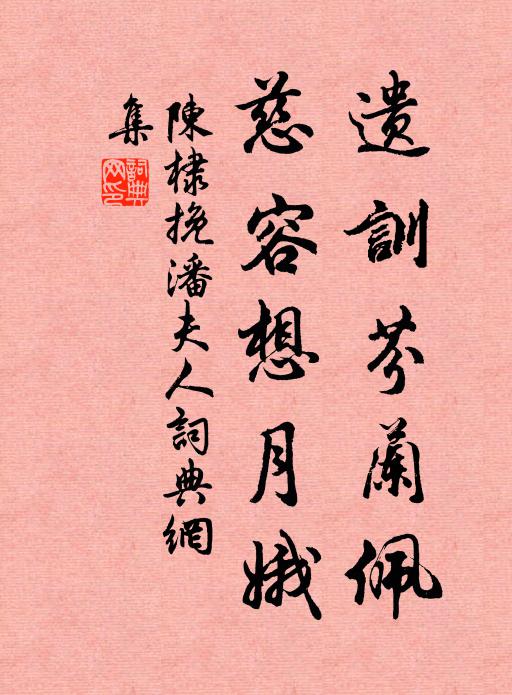 遺訓芬蘭佩
慈容想月娥
陳棣挽潘夫人詞典網
集
詞典網印